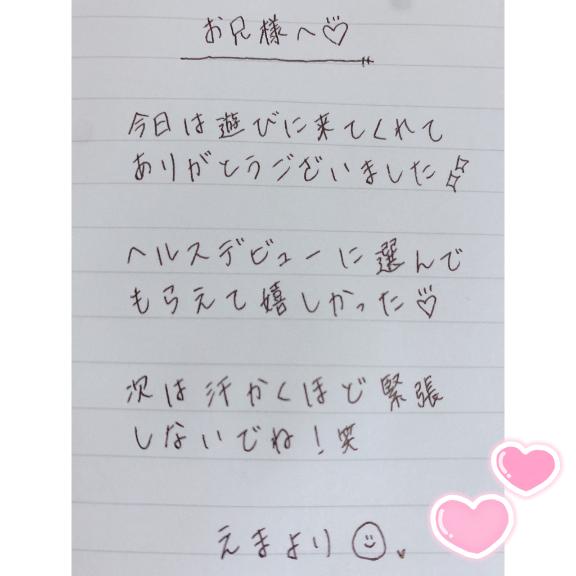 お兄様へ♡
今日は遊びに来てくれて
ありがとうございました
ヘルスデビューに選んで
もらえて嬉しかった♡
次は汗かくほど緊張
しないでね！笑
えまより